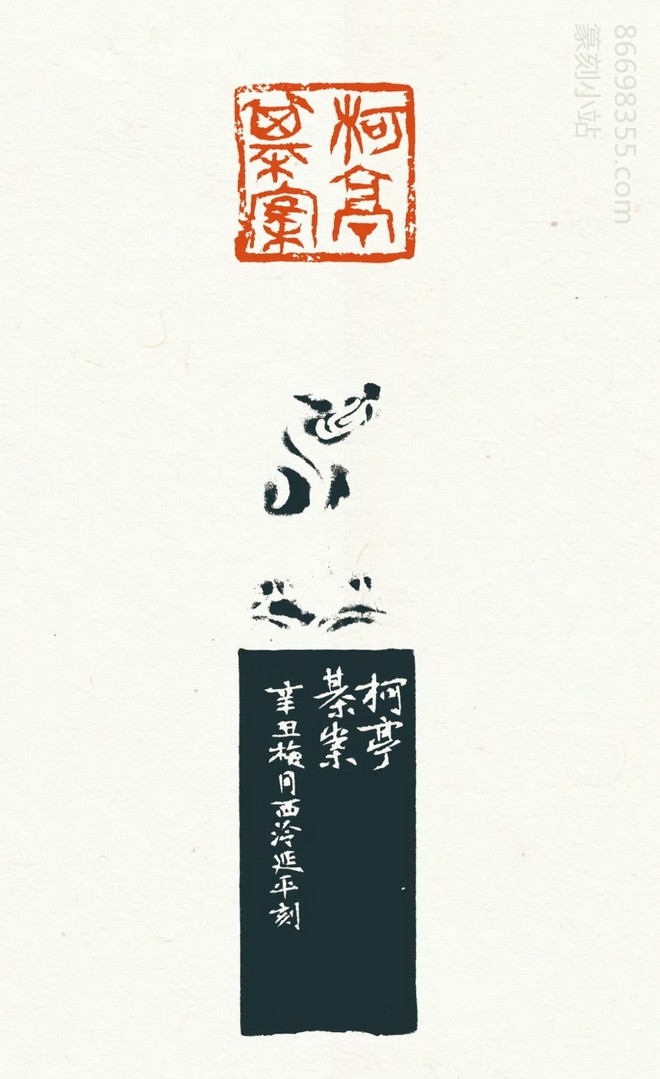 86698355.com
篆刻小站
柯亭
棊案
柯亭
棊案
辛丑梅月西泠延平刻